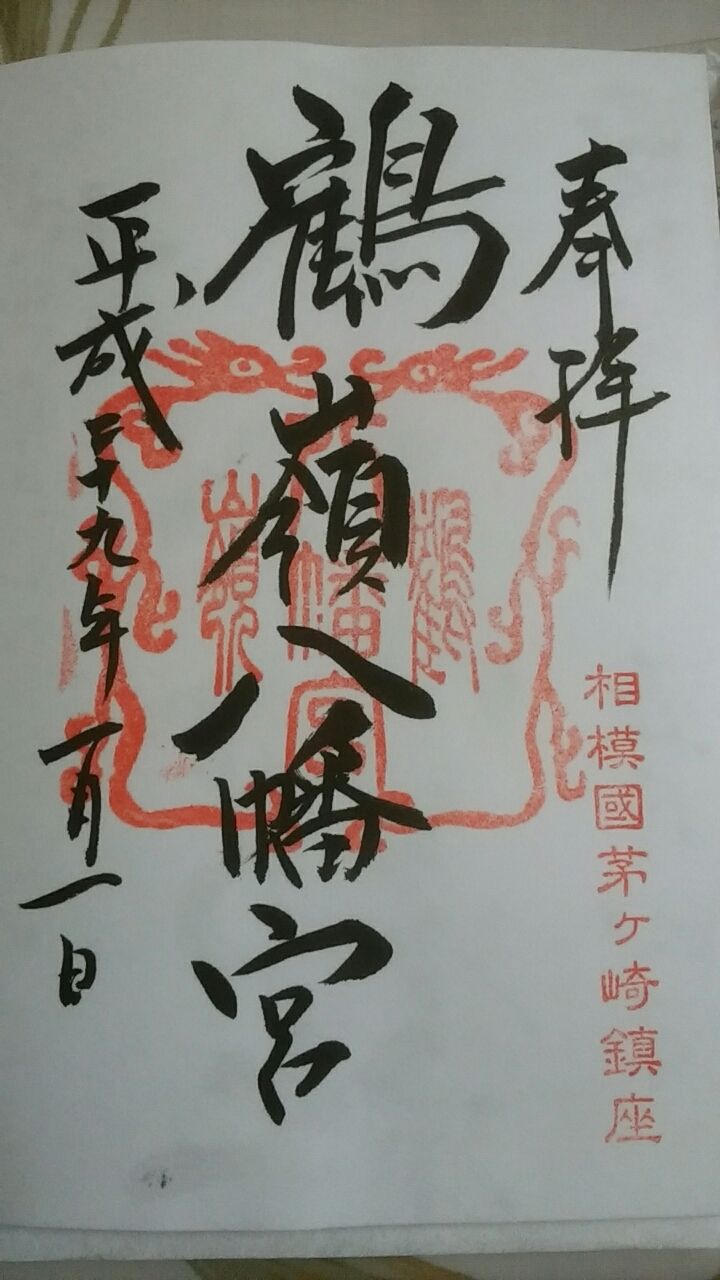 奉拝
相模國茅ヶ崎鎮座
鶴嶺八幡宮
鶴
八幡宮
嶺
平成二十九年一月一日